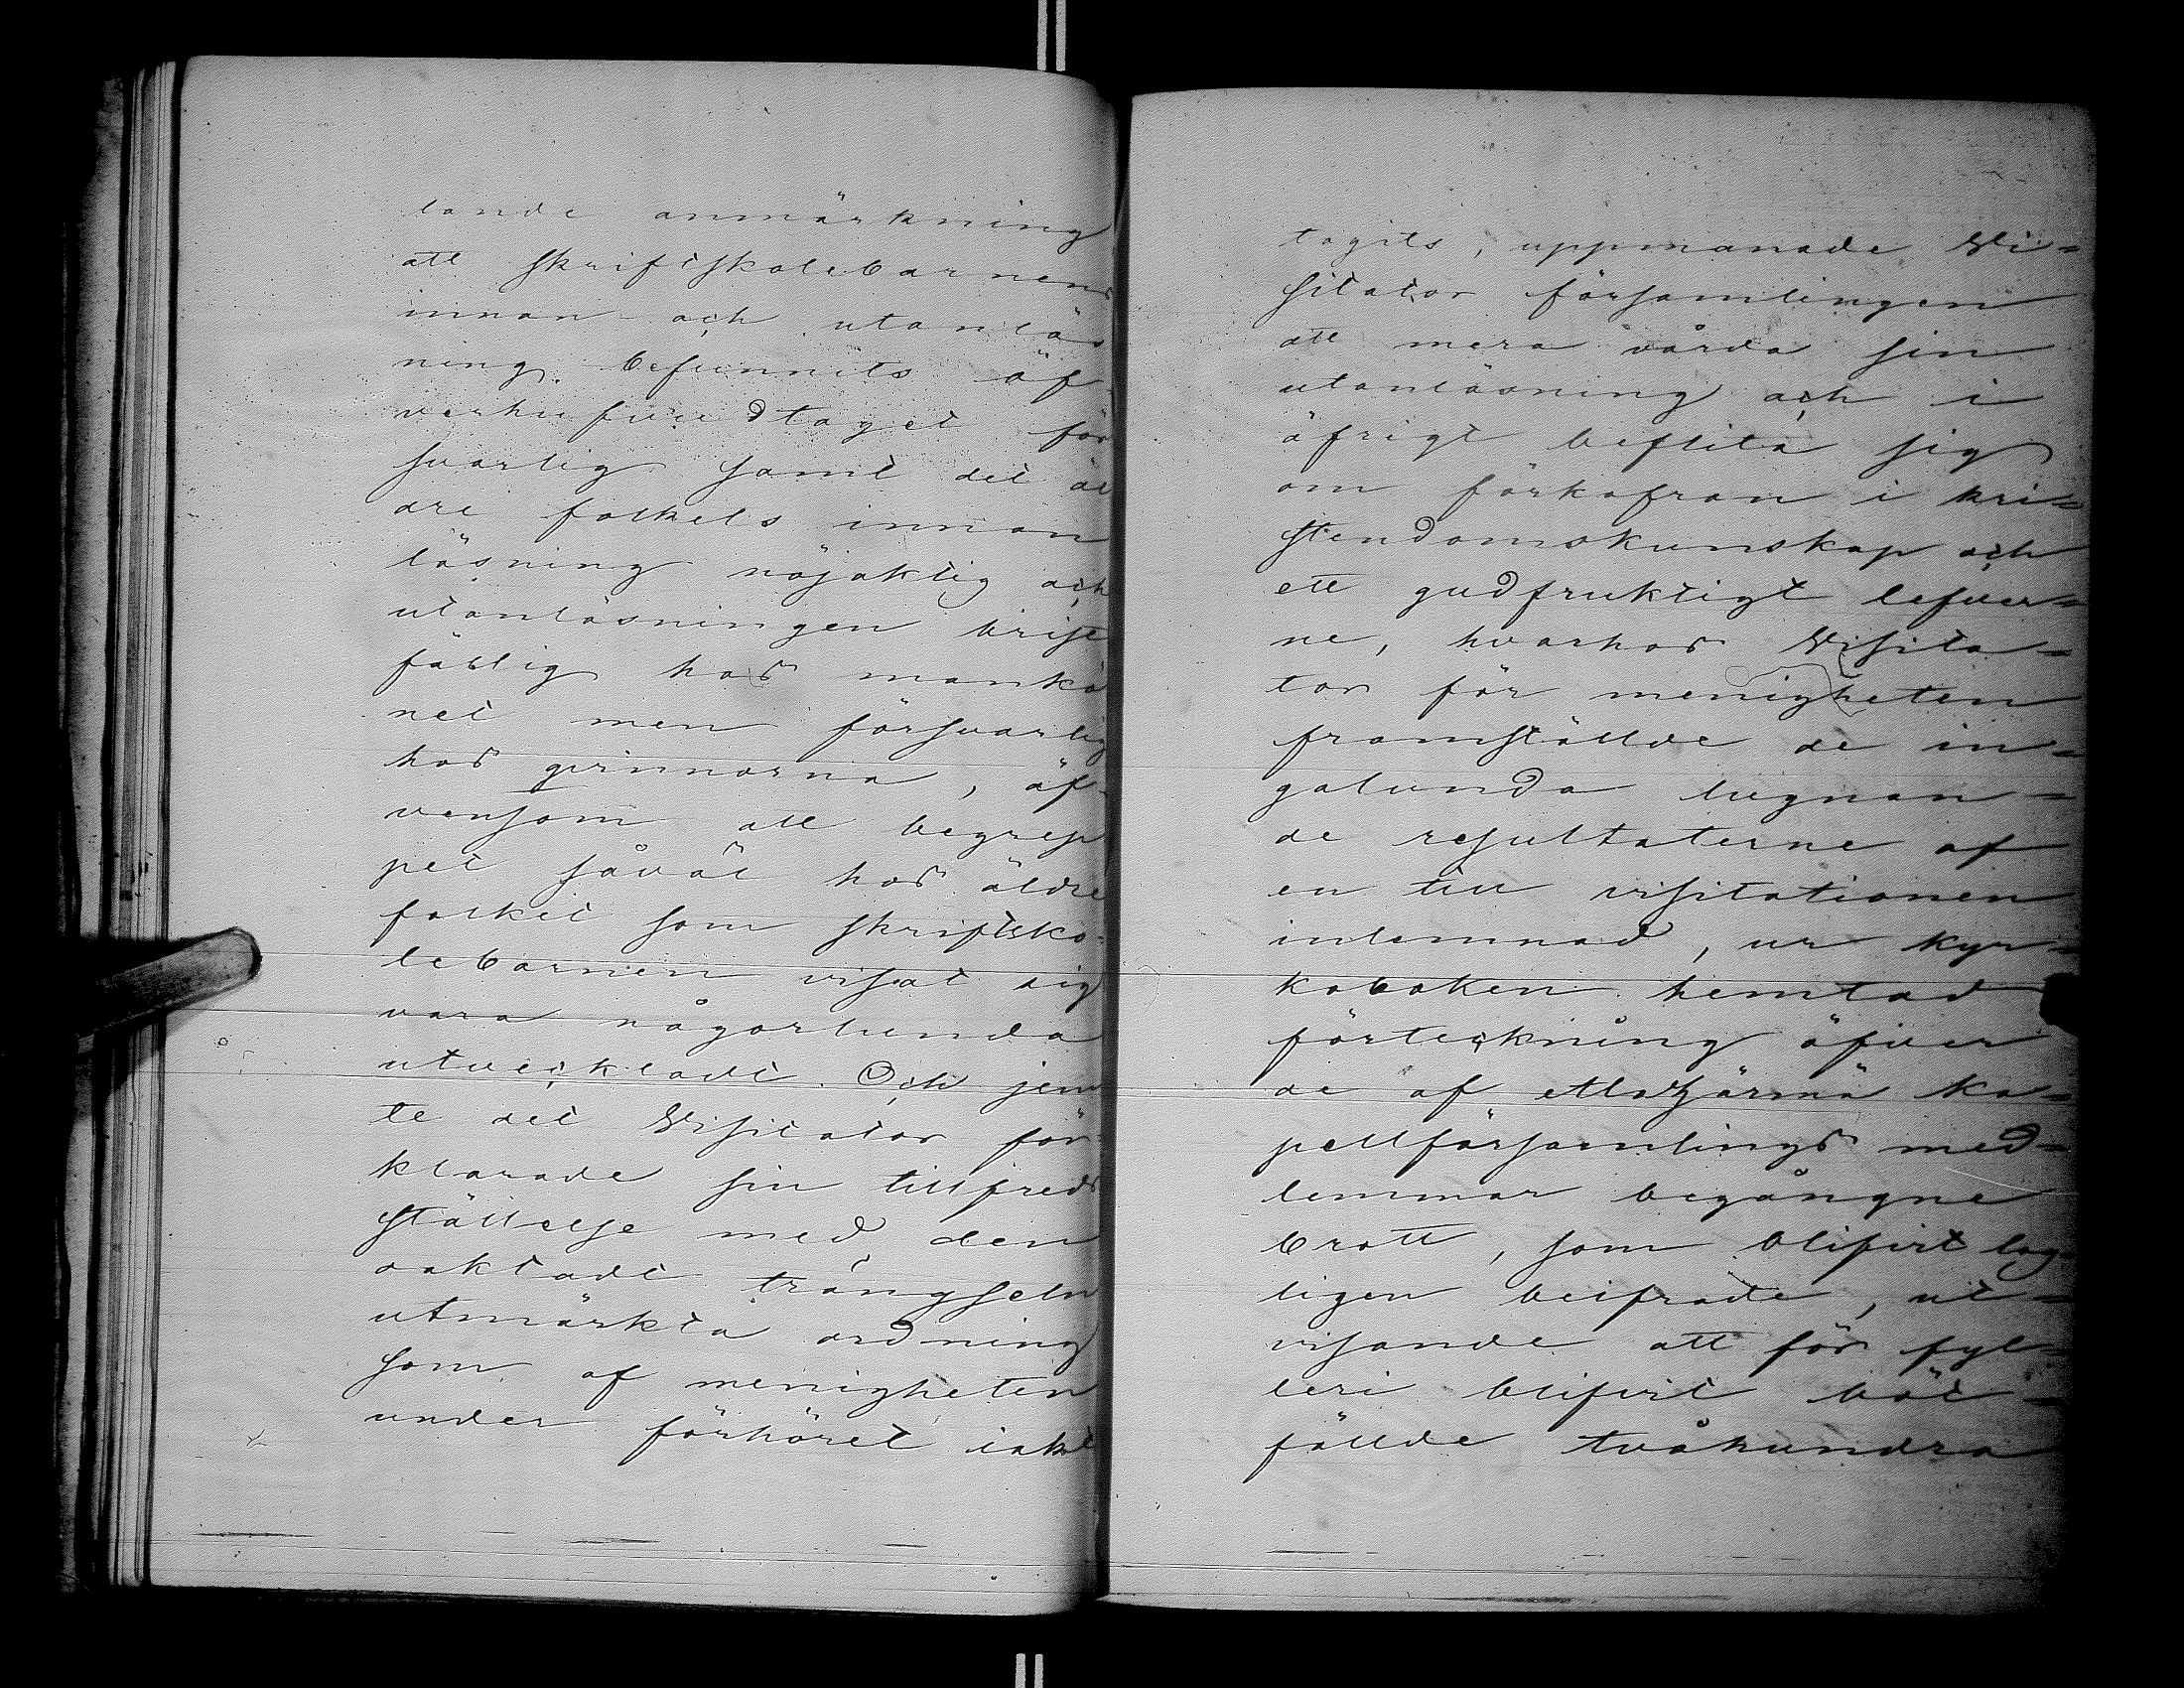 lande anmärkning
att skriftskolebarnens
innan- och utanläs
ning befunnits öf-
verhufvudtaget för
svarlig samt det äl
dre folkets innan
läsning nöjaktig och
utanläsningen brist
fällig hos mankö
net men försvarlig
hos qvinnorna, äf-
vensom att begrep
pet såväl hos äldre
folket som skriftsko-
lebarnen visat sig
vara någorlunda
utveckladt. Och jem
te det Visitator för
klarade sin tillfreds
ställelse med den
oaktadt trängseln
utmärkta ordning
som af menigheten
under förhöret iakt
tagits, uppmanade Vi=
sitator församlingen
att mera vårda sin
utanläsning och i
öfrigt beflita sig
om förkofran i kri=
stendomskunskap och
ett gudfruktigt lefver=
ne, hvarhos Visita=
tor för menigheten
framställde de in=
galunda lugnan=
de resultaterne af
en till visitationen
inlemnad, ur kyr=
koboken hemtad
förteckning öfver
de af Ka=
pellförsamlings med=
lemmar begångne
brott, som blifvit lag
ligen beifrade, ut=
visande att för fyl=
leri blifvit böt=
fällde tvåhundra